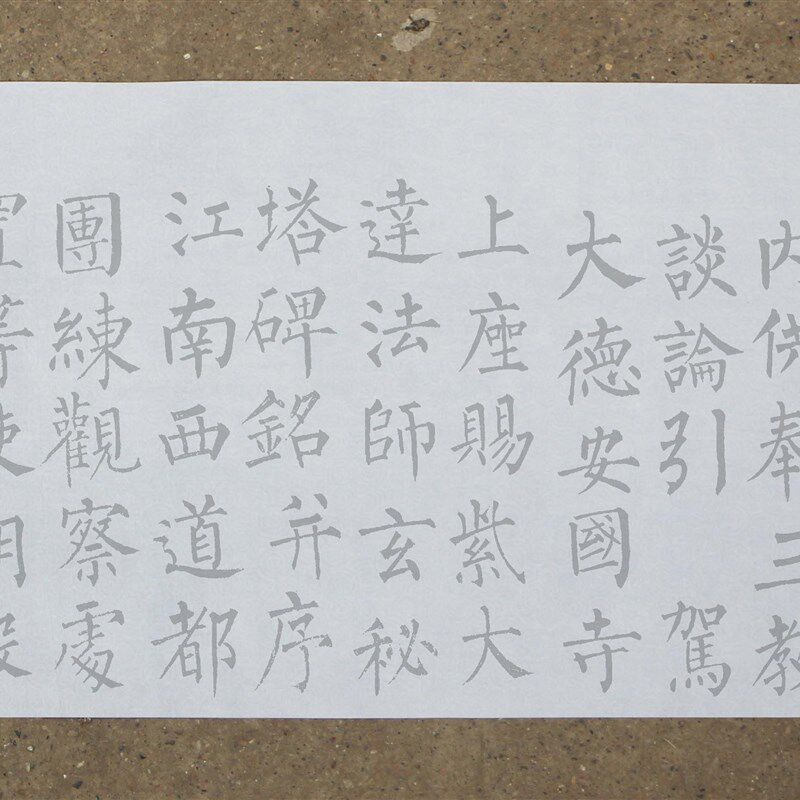 内供奉三教
談論引 駕
大德安國寺
上座賜紫大
達法師玄秘
塔碑銘并序
江南西道都
團練觀察處